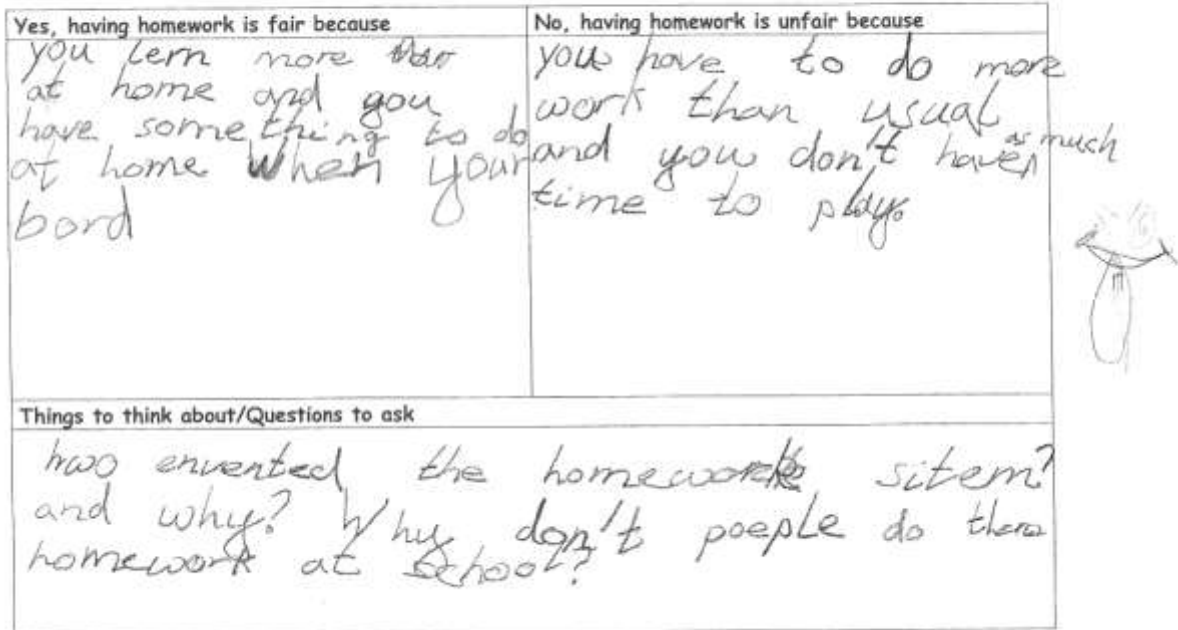 Yes, having homework is fair because
you lern more
at home and you
have something to do
at home when your
bord
No, having homework is unfair because
you have to do more
work than usual
and you don't have as much
time to play.
Things to think about/Questions to ask
hwo envented the homework sitem?
and why? Why don't poeple do there
homework at school?